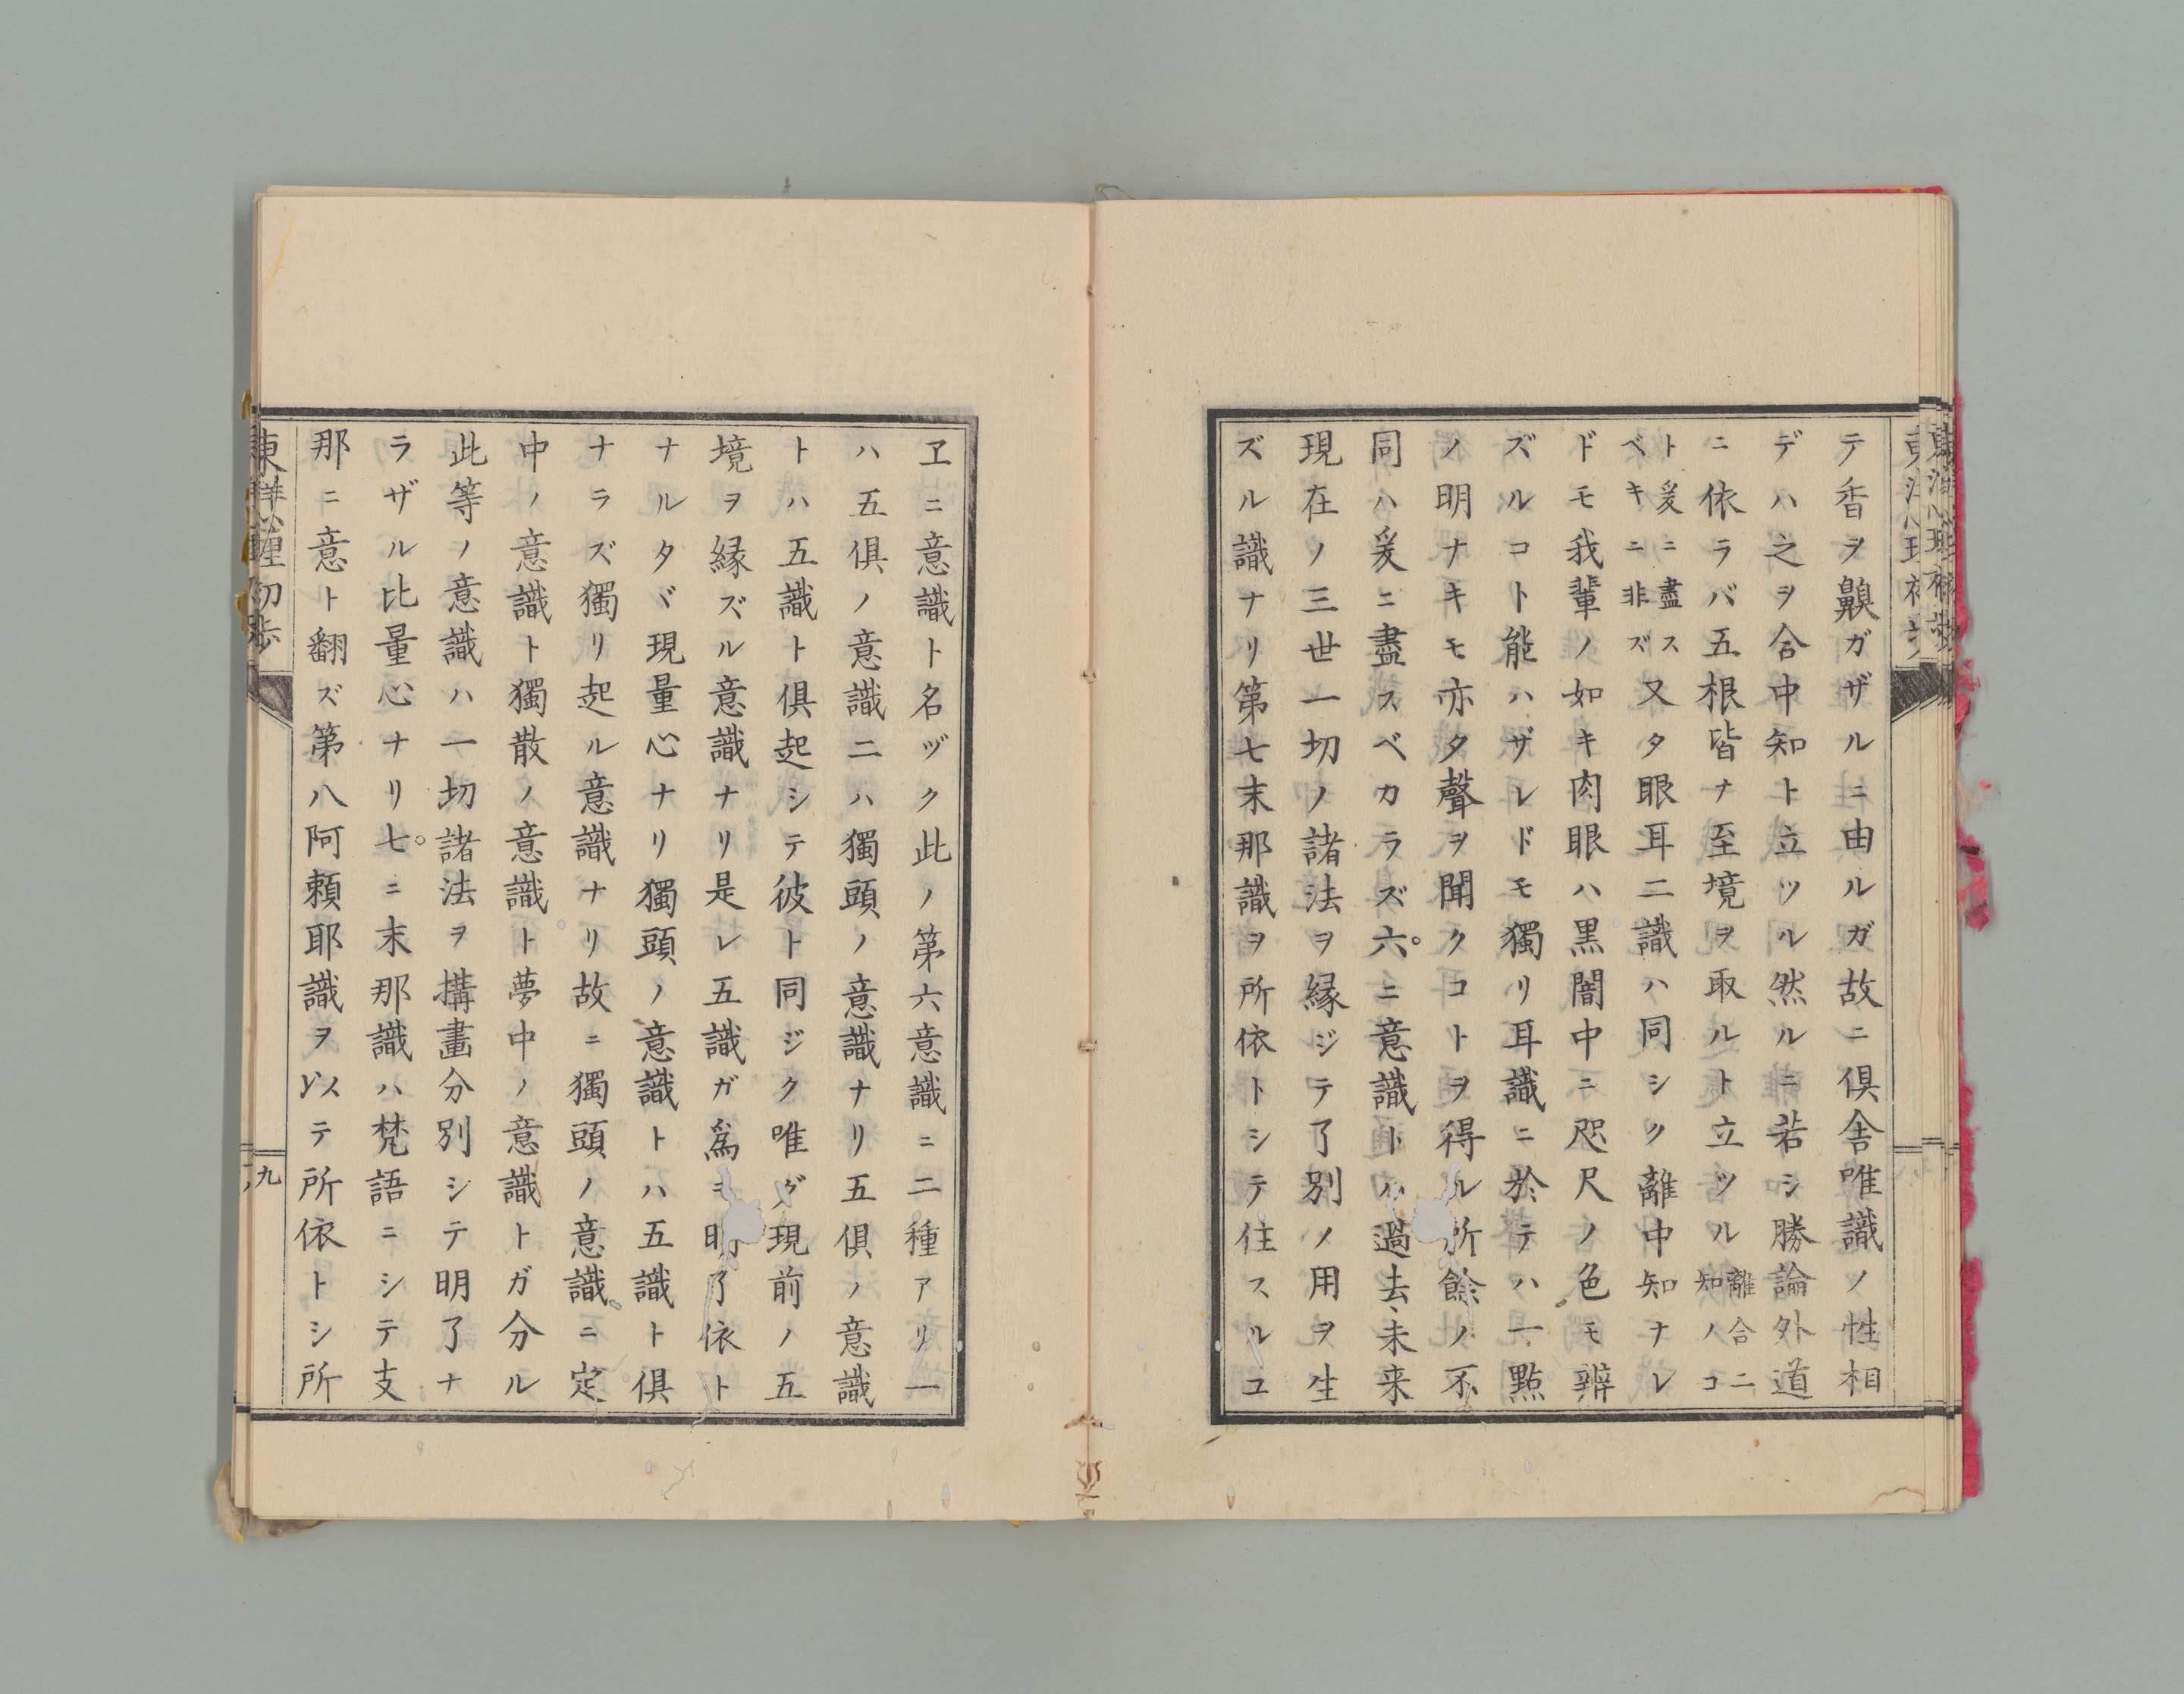 テ香ヲ齅ガザルニ由ルガ故ニ倶舎唯識ノ性相
デハ之ヲ合中知ト立ツル然ルニ若シ勝論外道
ニ依ラバ五根皆ナ至境ヲ取ルト立ツル離合二知ノコ
ト爰ニ盡スベキニ非ズ又タ眼耳二識ハ同シク離中知ナレ
ドモ我輩ノ如キ肉眼ハ黒闇中ニ咫尺ノ色モ辨
ズルコト能ハザレドモ獨リ耳識ニ於テハ一點
ノ明ナキモ亦タ聲ヲ聞クコトヲ得ル所餘ノ不
同ハ爰ニ盡スベカラズ六。ニ意識トハ過去、未来
現在ノ三世一切ノ諸法ヲ縁ジテ了別ノ用ヲ生
ズル識ナリ第七末那識ヲ所依トシテ住スルユ
ヱニ意識ト名ヅク此ノ第六意識ニ二種アリ一
ハ五倶ノ意識二ハ獨頭ノ意識ナリ五倶ノ意識
トハ五識ト倶起シテ彼ト同ジク唯ダ現前ノ五
境ヲ縁ズル意識ナリ是レ五識ガ爲ニ明了依ト
ナルタヾ現量心ナリ獨頭ノ意識トハ五識ト倶
ナラズ獨リ起ル意識ナリ故ニ獨頭ノ意識ニ定
中ノ意識ト獨散ノ意識ト夢中ノ意識トガ分ル
此等ノ意識ハ一切諸法ヲ搆畫分別シテ明了ナ
ラザル比量心ナリ七。ニ末那識ハ梵語ニシテ支
那ニ意ト翻ズ第八阿頼耶識ヲ以テ所依トシ所
東洋心理初歩
九